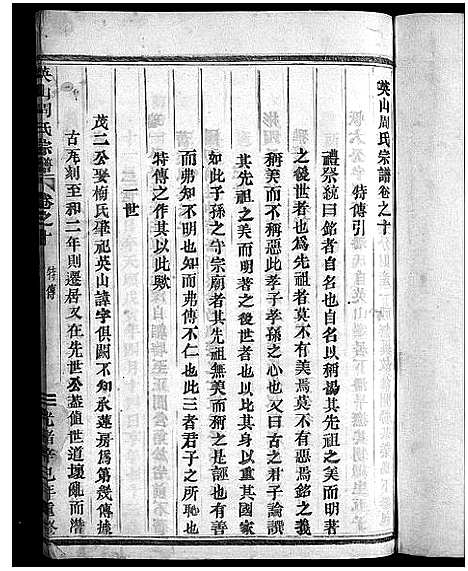 英山周氏宗譜卷之十
特傳引
禮祭統曰銘者自名也自名以稱揚其先祖之美而明著
之後世者也為先祖者莫不有美焉莫不有惡焉銘之義
稱美而不稱惡此孝子孝孫之心也又曰古之君子論譔
其先祖之美而明著之後世者也以比其身以重其國家
如此子孫之守宗廟者其先祖無美而稱之是誣也有善
而弗知不明也知而弗傳不仁也此三者君子之所恥也
特傳之作其以此歟
一世
茂二公娶梅氏肇祀英山諱字俱闕不知永蓮房為第幾傳據
古瓦刻至和二年則遷居又在先世公蓋值世道壞亂而潛
英山周氏宗譜
卷之十
特傳
光緒辛巳年重修